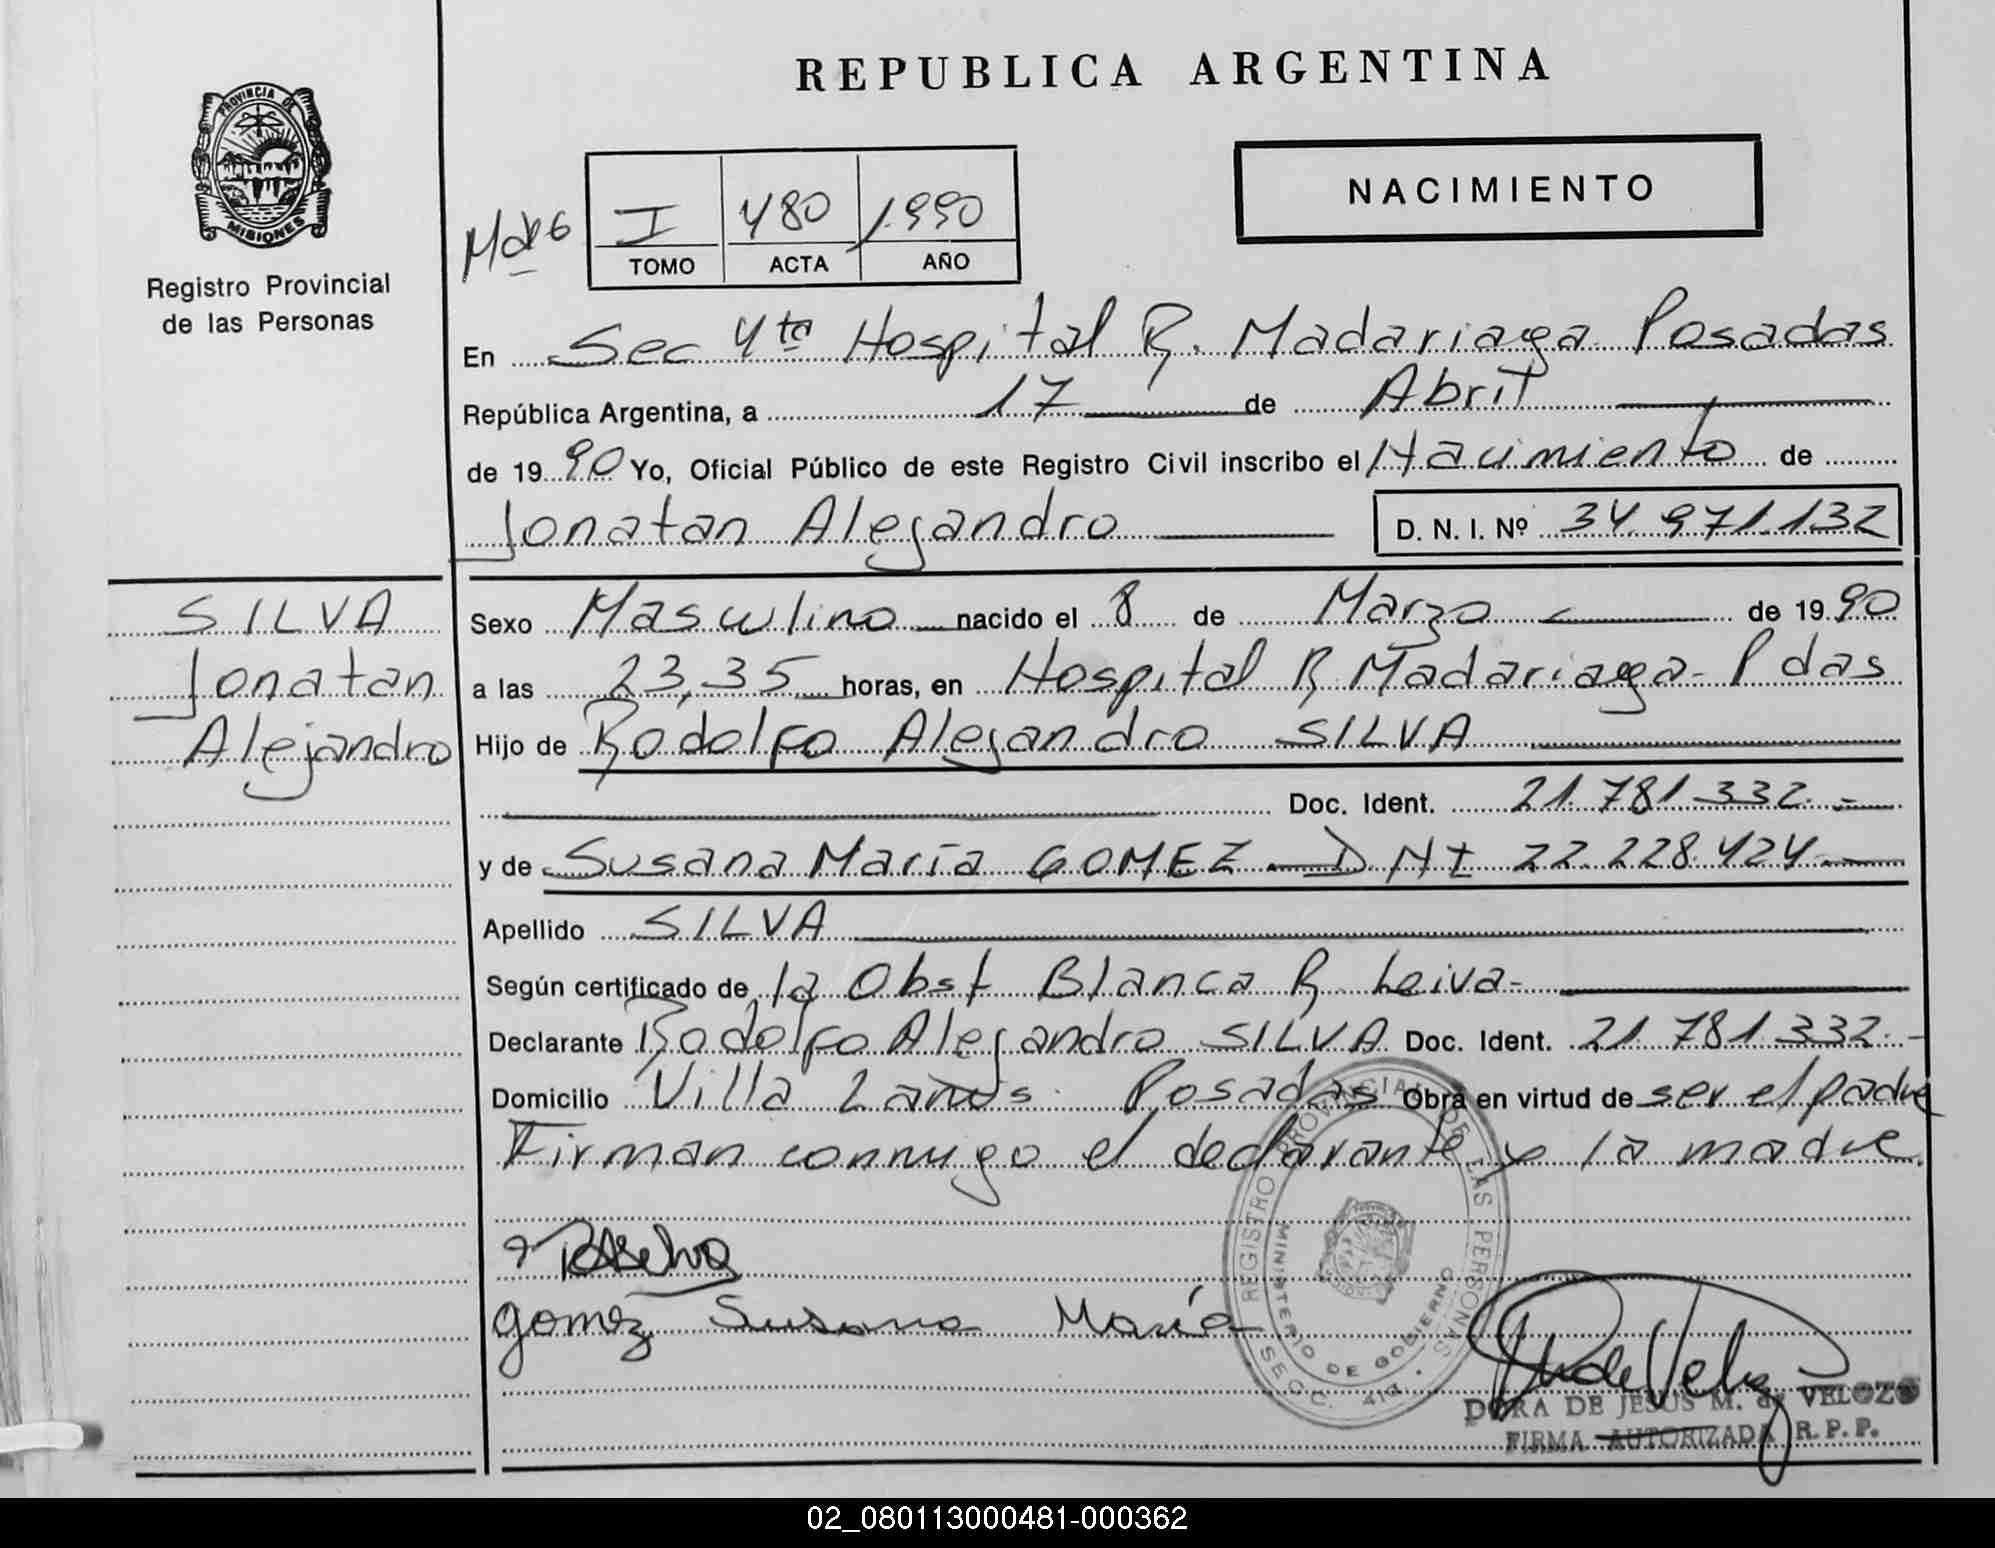 REPUBLICA ARGENTINA
PROVINCIA DE
MISIONES
Registro Provincial
de las Personas
NACIMIENTO
I 480 1.990
TOMO ACTA AÑO
En Sec 4ta Hospital R. Madariaga Posadas
República Argentina, a 17 de Abril
de 1990 Yo, Oficial Público de este Registro Civil inscribo el Nacimiento de
Jonatan Alejandro D. N. I. Nº 34.971.132
SILVA
Jonatan
Alejandro
Sexo Masculino nacido el 8 de Marzo de 1990
a las 23,35 horas, en Hospital R Madariaga - Pdas
Hijo de Rodolfo Alejandro SILVA
Doc. Ident. 21.781.332.-
y de Susana María GOMEZ - DNI 22.228.424.-
Apellido SILVA
Según certificado de la Obst Blanca R. Leiva-
Declarante Rodolfo Alejandro SILVA Doc. Ident. 21.781.332.-
Domicilio Villa Lanus. Posadas Obra en virtud de ser el padre
Firman conmigo el declarante y la madre.
Gomez Susana María
REGISTRO PROVINCIAL DE LAS PERSONAS
MINISTERIO DE GOBIERNO
SECC. 4ta
DORA DE JESUS M. de VELOZO
FIRMA AUTORIZADA R. P. P.
02_080113000481-000362